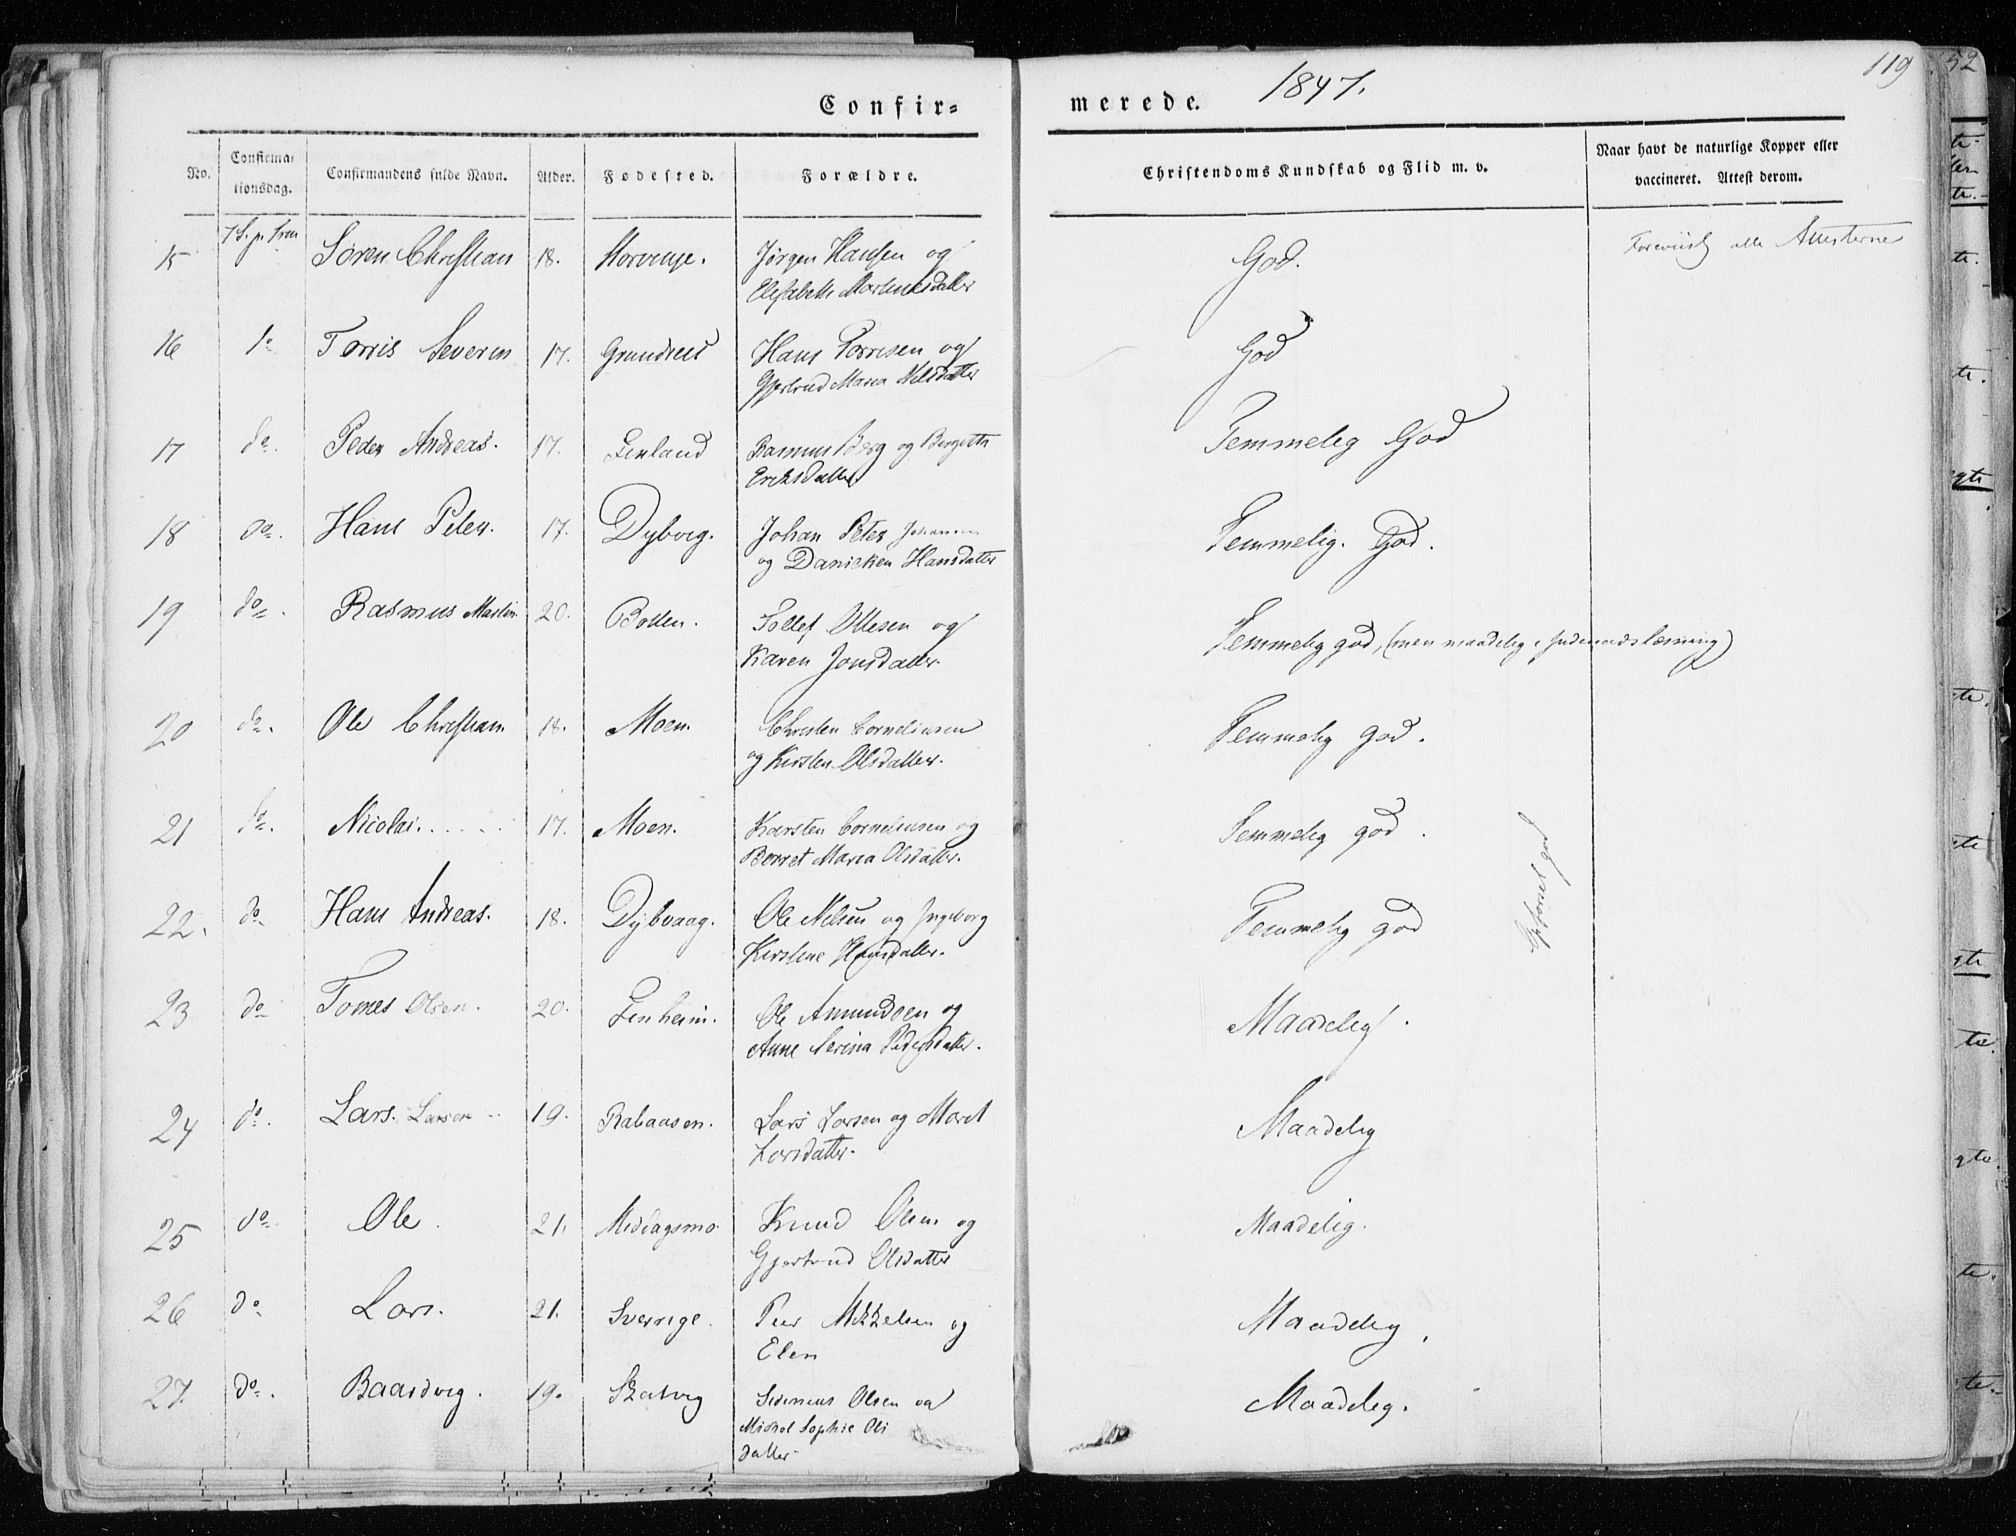 Confir=
merede. 1847. 119 52
No. Confirma-tionsdag. Confirmandens fulde Navn. Alder. Fødested. Forældre. Christendoms Kundskab og Flid m. v. Naar havt de naturlige Kopper eller vaccineret. Attest derom.
15 7 S. p. Trin Søren Christian 18. Jørgen Hansen og God. Foreviist alle Attesterne
Elisabeth Martinusdatter
16 do Torris Severin 17. Hans Torrisen og God
Gjertrud Maria Nilsdatter
17 do. Peder Andreas. 17. Finland Rasmus Berg og Bergette Temmelig God
Eriksdatter
18 do. Hans Peter. 17. Dyborg. Johan Peter Johansen Temmelig. God.
og Daniken Hansdatter
19 do. Rasmus Martin 20. Botten. Tollef Ottesen og Temmelig god, (men maadelig i Indenadslæsning)
Karen Jonsdatter.
20 do. Ole Christian 18. Moen. Christen Corneliusen Temmelig god.
og Kirsten Olsdatter.
21 do. Nicolai..... 17. Moen. Karsten Corneliusen og Temmelig god.
Berret Maria Olsdatter.
22. do Hans Andreas. 18. Dybvaag. Ole Nilsen og Ingeborg Temmelig god
Kirstine Hansdatter.
23 do Tomes Olsen. 20. Finheim. Ole Amundsen og Maadelig.
Anne Serina Pedersdatter.
24 do. Lars. Larsen 19. Rabaasen. Lars Larsen og Maret Maadelig
Larsdatter.
25 do Ole. 21. Middagsmo Knud Olsen og Maadelig.
Gjertrud Olsdatter
26 do Lars. 21. Sverrige. Peer Mikkelsen og Maadelig.
Elen
27. do. Baardvig. 19. Skatvig Simenus Olsen og Maadelig.
Michol Sophie Ols
datter